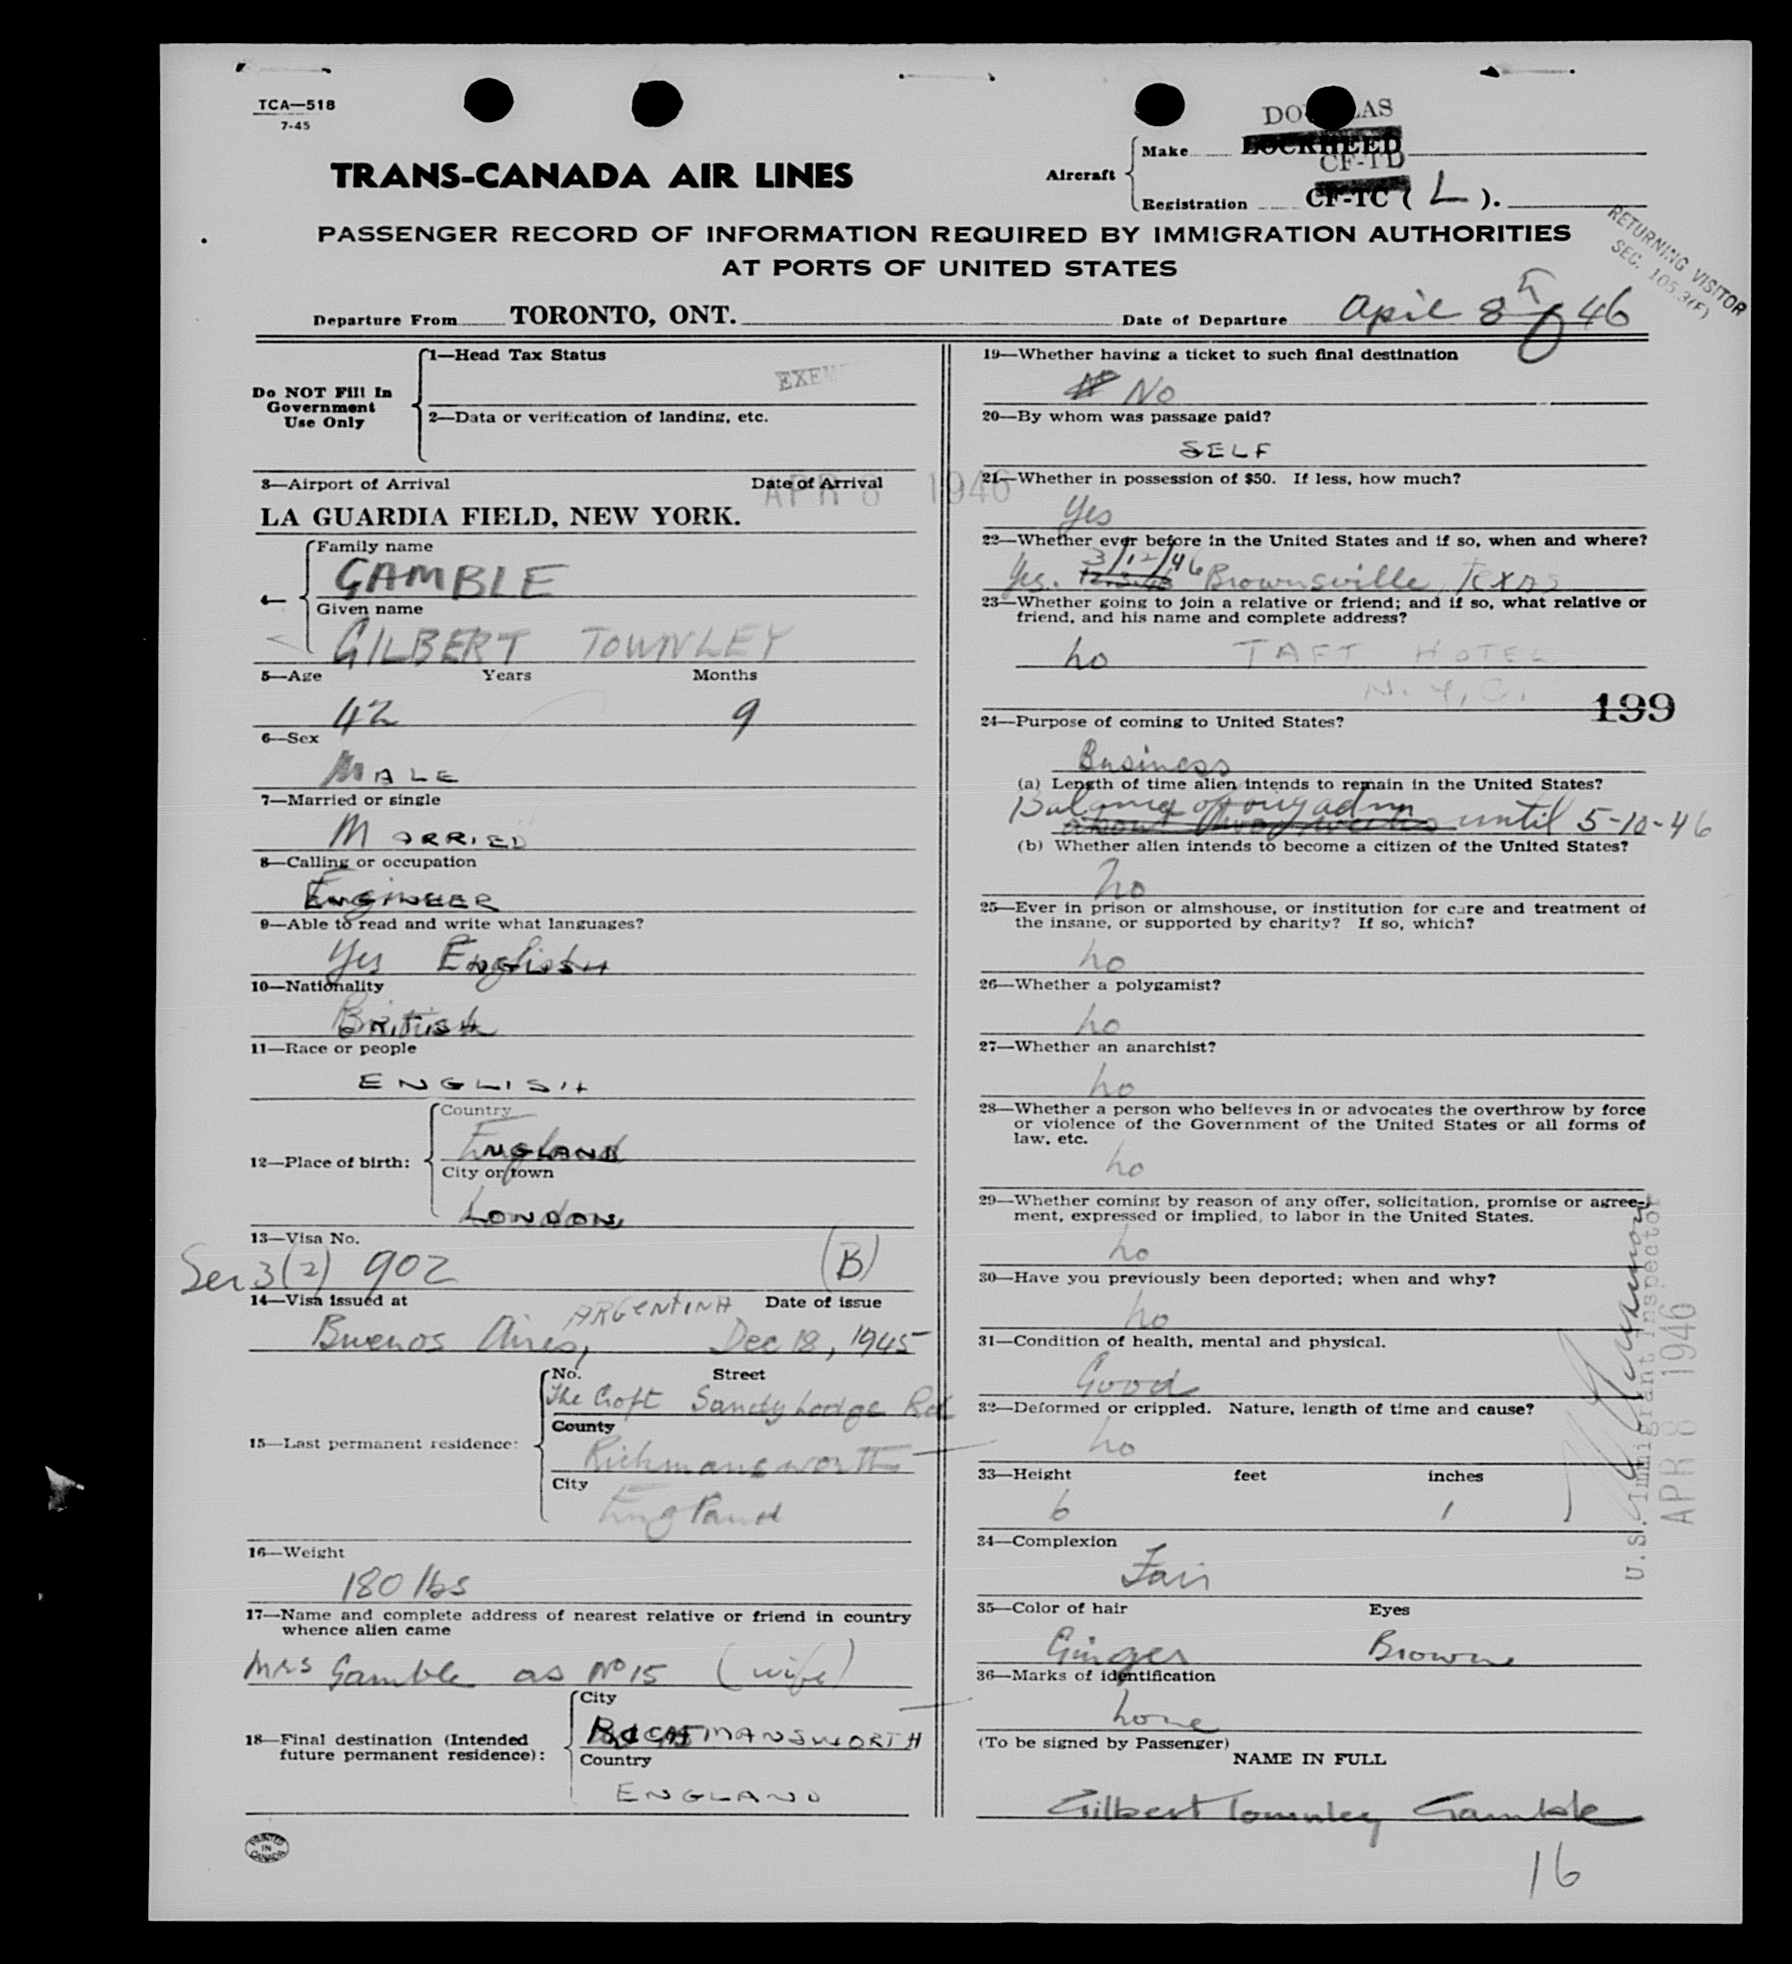 TCA—518
7-45
DO LAS
Aircraft
Make LOCKHEED
CF-TD
Registration CF-TC ( L ).
TRANS-CANADA AIR LINES
PASSENGER RECORD OF INFORMATION REQUIRED BY IMMIGRATION AUTHORITIES
AT PORTS OF UNITED STATES
RETURNING VISITOR
SEC. 105.3(F)
Departure From TORONTO, ONT. Date of Departure April 8th 46
Do NOT Fill In
Government
Use Only
1—Head Tax Status
EXEM
2—Data or verification of landing, etc.
3—Airport of Arrival Date of Arrival
APR 8 1946
LA GUARDIA FIELD, NEW YORK.
4—
Family name
GAMBLE
Given name
GILBERT TOWNLEY
5—Age Years Months
42 9
6—Sex
MALE
7—Married or single
MARRIED
8—Calling or occupation
ENGINEER
9—Able to read and write what languages?
Yes ENGLISH
10—Nationality
BRITISH
11—Race or people
ENGLISH
12—Place of birth:
Country
ENGLAND
City or town
LONDON
13—Visa No.
Sec 3(2) 902 (B)
14—Visa issued at Date of issue
ARGENTINA
Buenos Aires, Dec 18, 1945
15—Last permanent residence:
No. Street
The Croft Sandy Lodge Rd
County
Richmansworth
City
England
16—Weight
180 lbs
17—Name and complete address of nearest relative or friend in country
whence alien came
Mrs Gamble as No 15 (wife)
18—Final destination (Intended
future permanent residence):
City
RICHMANSWORTH
Country
ENGLAND
PRINTED
IN
CANADA
19—Whether having a ticket to such final destination
No
20—By whom was passage paid?
SELF
21—Whether in possession of $50. If less, how much?
Yes
22—Whether ever before in the United States and if so, when and where?
3/12/46
Yes. Brownsville, Texas
23—Whether going to join a relative or friend; and if so, what relative or
friend, and his name and complete address?
no TAFT HOTEL
N.Y.C.
199
24—Purpose of coming to United States?
Business
(a) Length of time alien intends to remain in the United States?
Balance of orig adm
about two weeks until 5-10-46
(b) Whether alien intends to become a citizen of the United States?
no
25—Ever in prison or almshouse, or institution for care and treatment of
the insane, or supported by charity? If so, which?
no
26—Whether a polygamist?
no
27—Whether an anarchist?
no
28—Whether a person who believes in or advocates the overthrow by force
or violence of the Government of the United States or all forms of
law, etc.
no
29—Whether coming by reason of any offer, solicitation, promise or agree-
ment, expressed or implied, to labor in the United States.
no
30—Have you previously been deported; when and why?
no
31—Condition of health, mental and physical.
Good
32—Deformed or crippled. Nature, length of time and cause?
no
33—Height feet inches
6 1
34—Complexion
Fair
35—Color of hair Eyes
Ginger Brown
36—Marks of identification
none
(To be signed by Passenger)
NAME IN FULL
Gilbert Townley Gamble
16
U.S. Immigrant Inspector
APR 8 1946